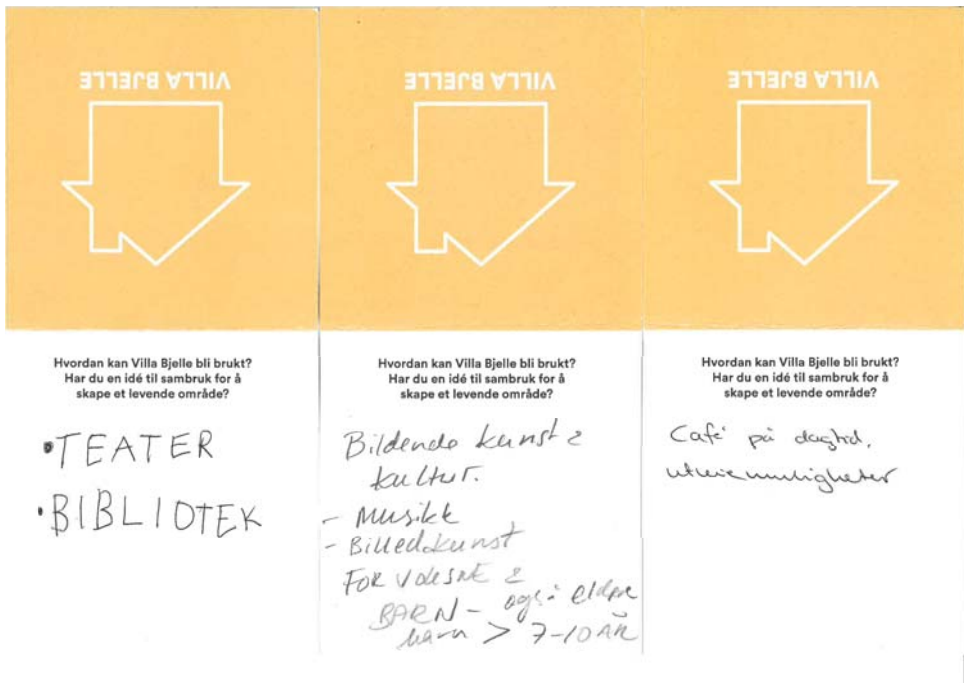 VILLA BJELLE
Hvordan kan Villa Bjelle bli brukt?
Har du en idé til sambruk for å
skape et levende område?
•TEATER
•BIBLIOTEK
VILLA BJELLE
Hvordan kan Villa Bjelle bli brukt?
Har du en idé til sambruk for å
skape et levende område?
Bildende kunst &
kultur.
- Musikk
- Billedkunst
FOR VOKSNE &
BARN - også eldre
barn > 7-10 ÅR
VILLA BJELLE
Hvordan kan Villa Bjelle bli brukt?
Har du en idé til sambruk for å
skape et levende område?
Café på dagtid,
utleiemuligheter